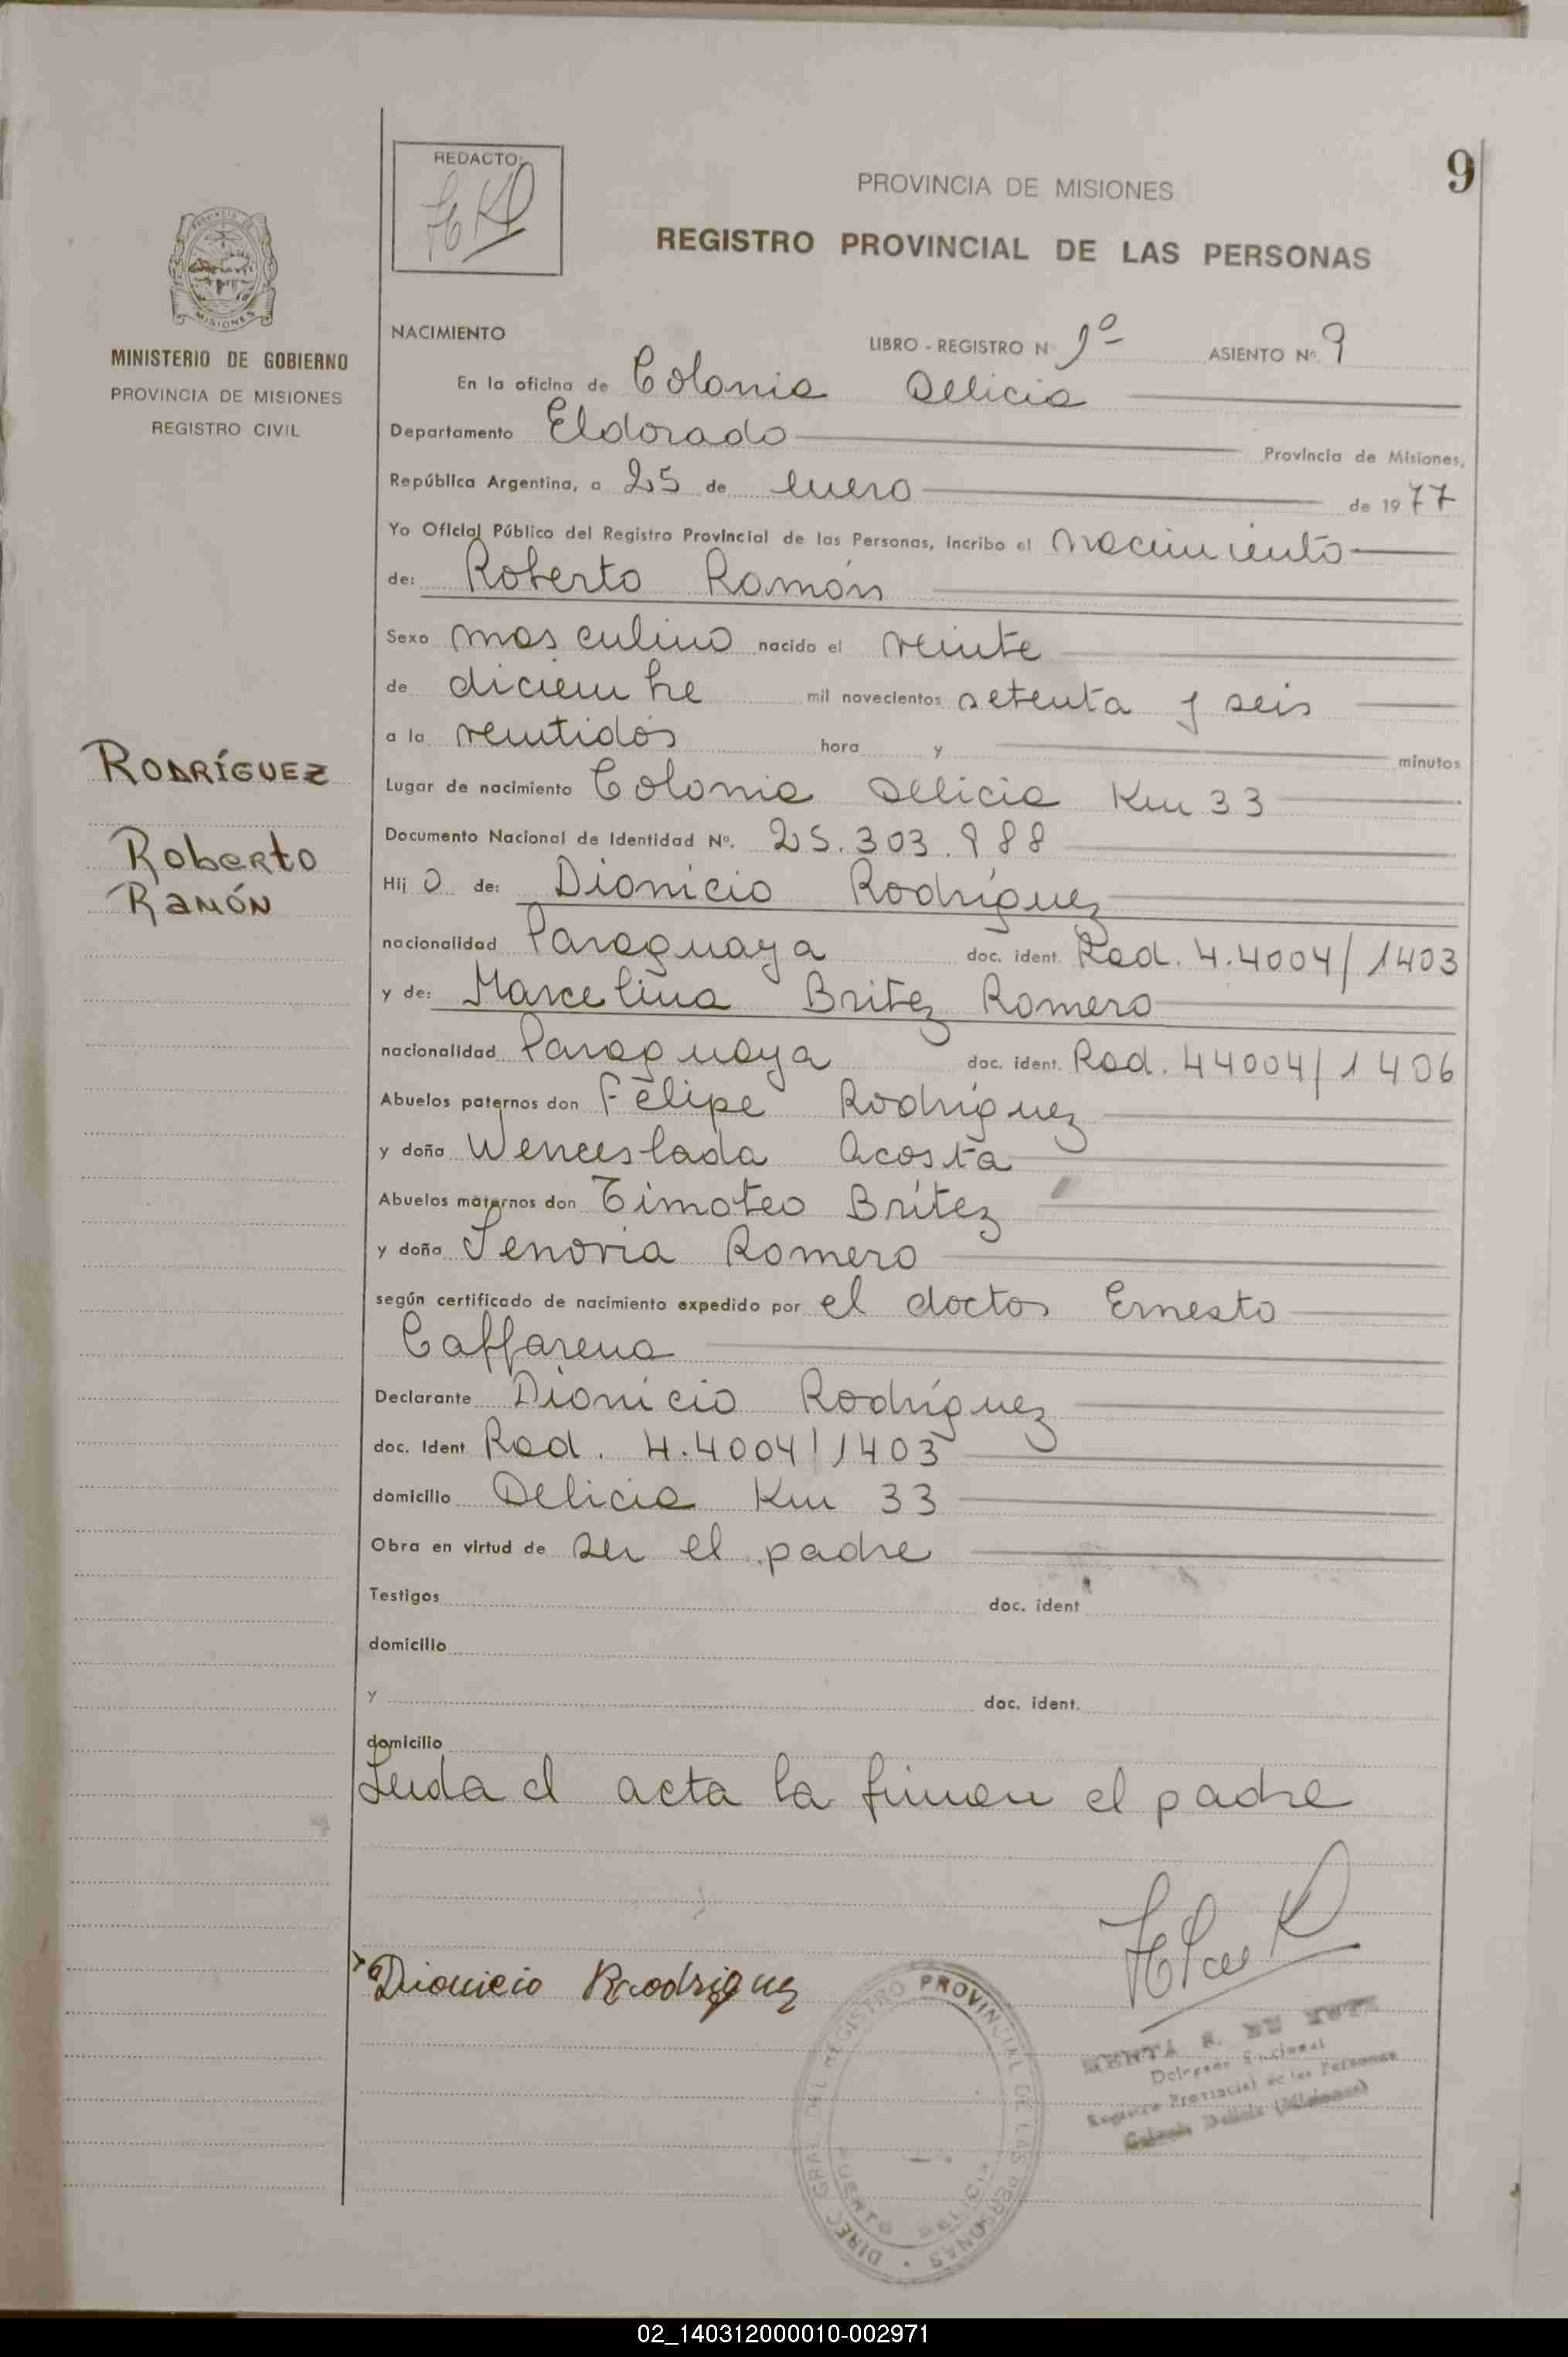 9
REDACTO:
PROVINCIA DE MISIONES
REGISTRO PROVINCIAL DE LAS PERSONAS
MISIONES
MINISTERIO DE GOBIERNO
PROVINCIA DE MISIONES
REGISTRO CIVIL
NACIMIENTO LIBRO - REGISTRO N 1º ASIENTO Nº. 9
En la oficina de Colonia Delicia
Departamento Eldorado Provincia de Misiones,
República Argentina, a 25 de enero de 1977
Yo Oficial Público del Registro Provincial de las Personas, incribo el nacimiento
de: Roberto Ramón
Sexo masculino nacido el veinte
de diciembre mil novecientos setenta y seis
a la veintidós hora y minutos
Lugar de nacimiento Colonia Delicia Km 33
Documento Nacional de Identidad Nº. 25.303.988
Hij o de: Dionicio Rodríguez
nacionalidad Paraguaya doc. ident. Rad. 4.4004/1403
y de: Marcelina Britez Romero
nacionalidad Paraguaya doc. ident. Rad. 44004/1406
Abuelos paternos don Felipe Rodríguez
y doña Wenceslada Acosta
Abuelos maternos don Timoteo Brítez
y doña Senoria Romero
según certificado de nacimiento expedido por el doctor Ernesto
Caffarena
Declarante Dionicio Rodríguez
doc. Ident Rad. 4.4004/1403
domicilio Delicia Km 33
Obra en virtud de ser el padre
Testigos doc. ident
domicilio
y doc. ident.
domicilio
Leida el acta la firman el padre
RODRÍGUEZ
Roberto
RAMÓN
Dionicio Rrodriguz
DIREC. GRAL. DEL REGISTRO PROVINCIAL DE LAS PERSONAS
DELICIA
Registro Provincial de las Personas
Colonia Delicia (Misiones)
02_140312000010-002971